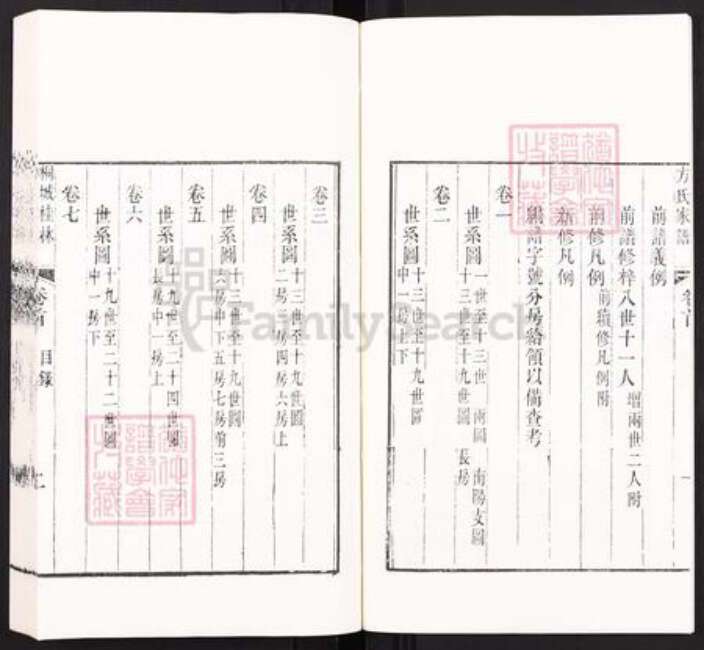 方氏家譜 卷首
前譜義例
前譜修梓八世十一人 增兩世二人附
前修凡例 前續修凡例附
新修凡例
領譜字號分房給領以備查考
卷一
世系圖 一世至十三世圖 南陽支圖
卷二
十三世至十九世圖 長房
世系圖 十三世至十九世圖
中一房上下
卷三
世系圖 十三世至十九世圖
二房三房四房六房上
卷四
世系圖 十三世至十九世圖
六房中下五房七房前三房
卷五
世系圖 十九世至二十四世圖
長房中一房上
卷六
世系圖 十九世至二十二世圖
中一房下
卷七
桐城桂林
卷首 目錄
二
FamilySearch